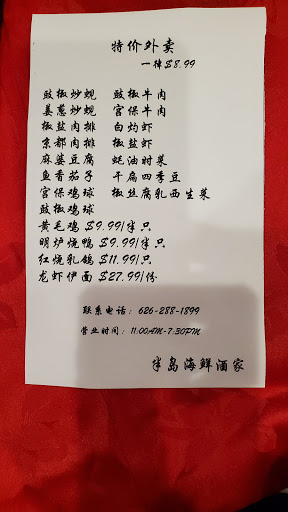 特价外卖
一样$8.99
豉椒炒蚬 豉椒牛肉
姜葱炒蚬 宫保牛肉
椒盐肉排 白灼虾
京都肉排 椒盐虾
麻婆豆腐 蚝油时菜
鱼香茄子 干扁四季豆
宫保鸡球 椒丝腐乳西生菜
豉椒鸡球
黄毛鸡 $9.99/半只
明炉烧鸭 $9.99/半只
红烧乳鸽 $11.99/只
龙虾伊面 $27.99/份
联系电话: 626-288-1899
营业时间: 11:00AM-7:30PM
半岛海鲜酒家